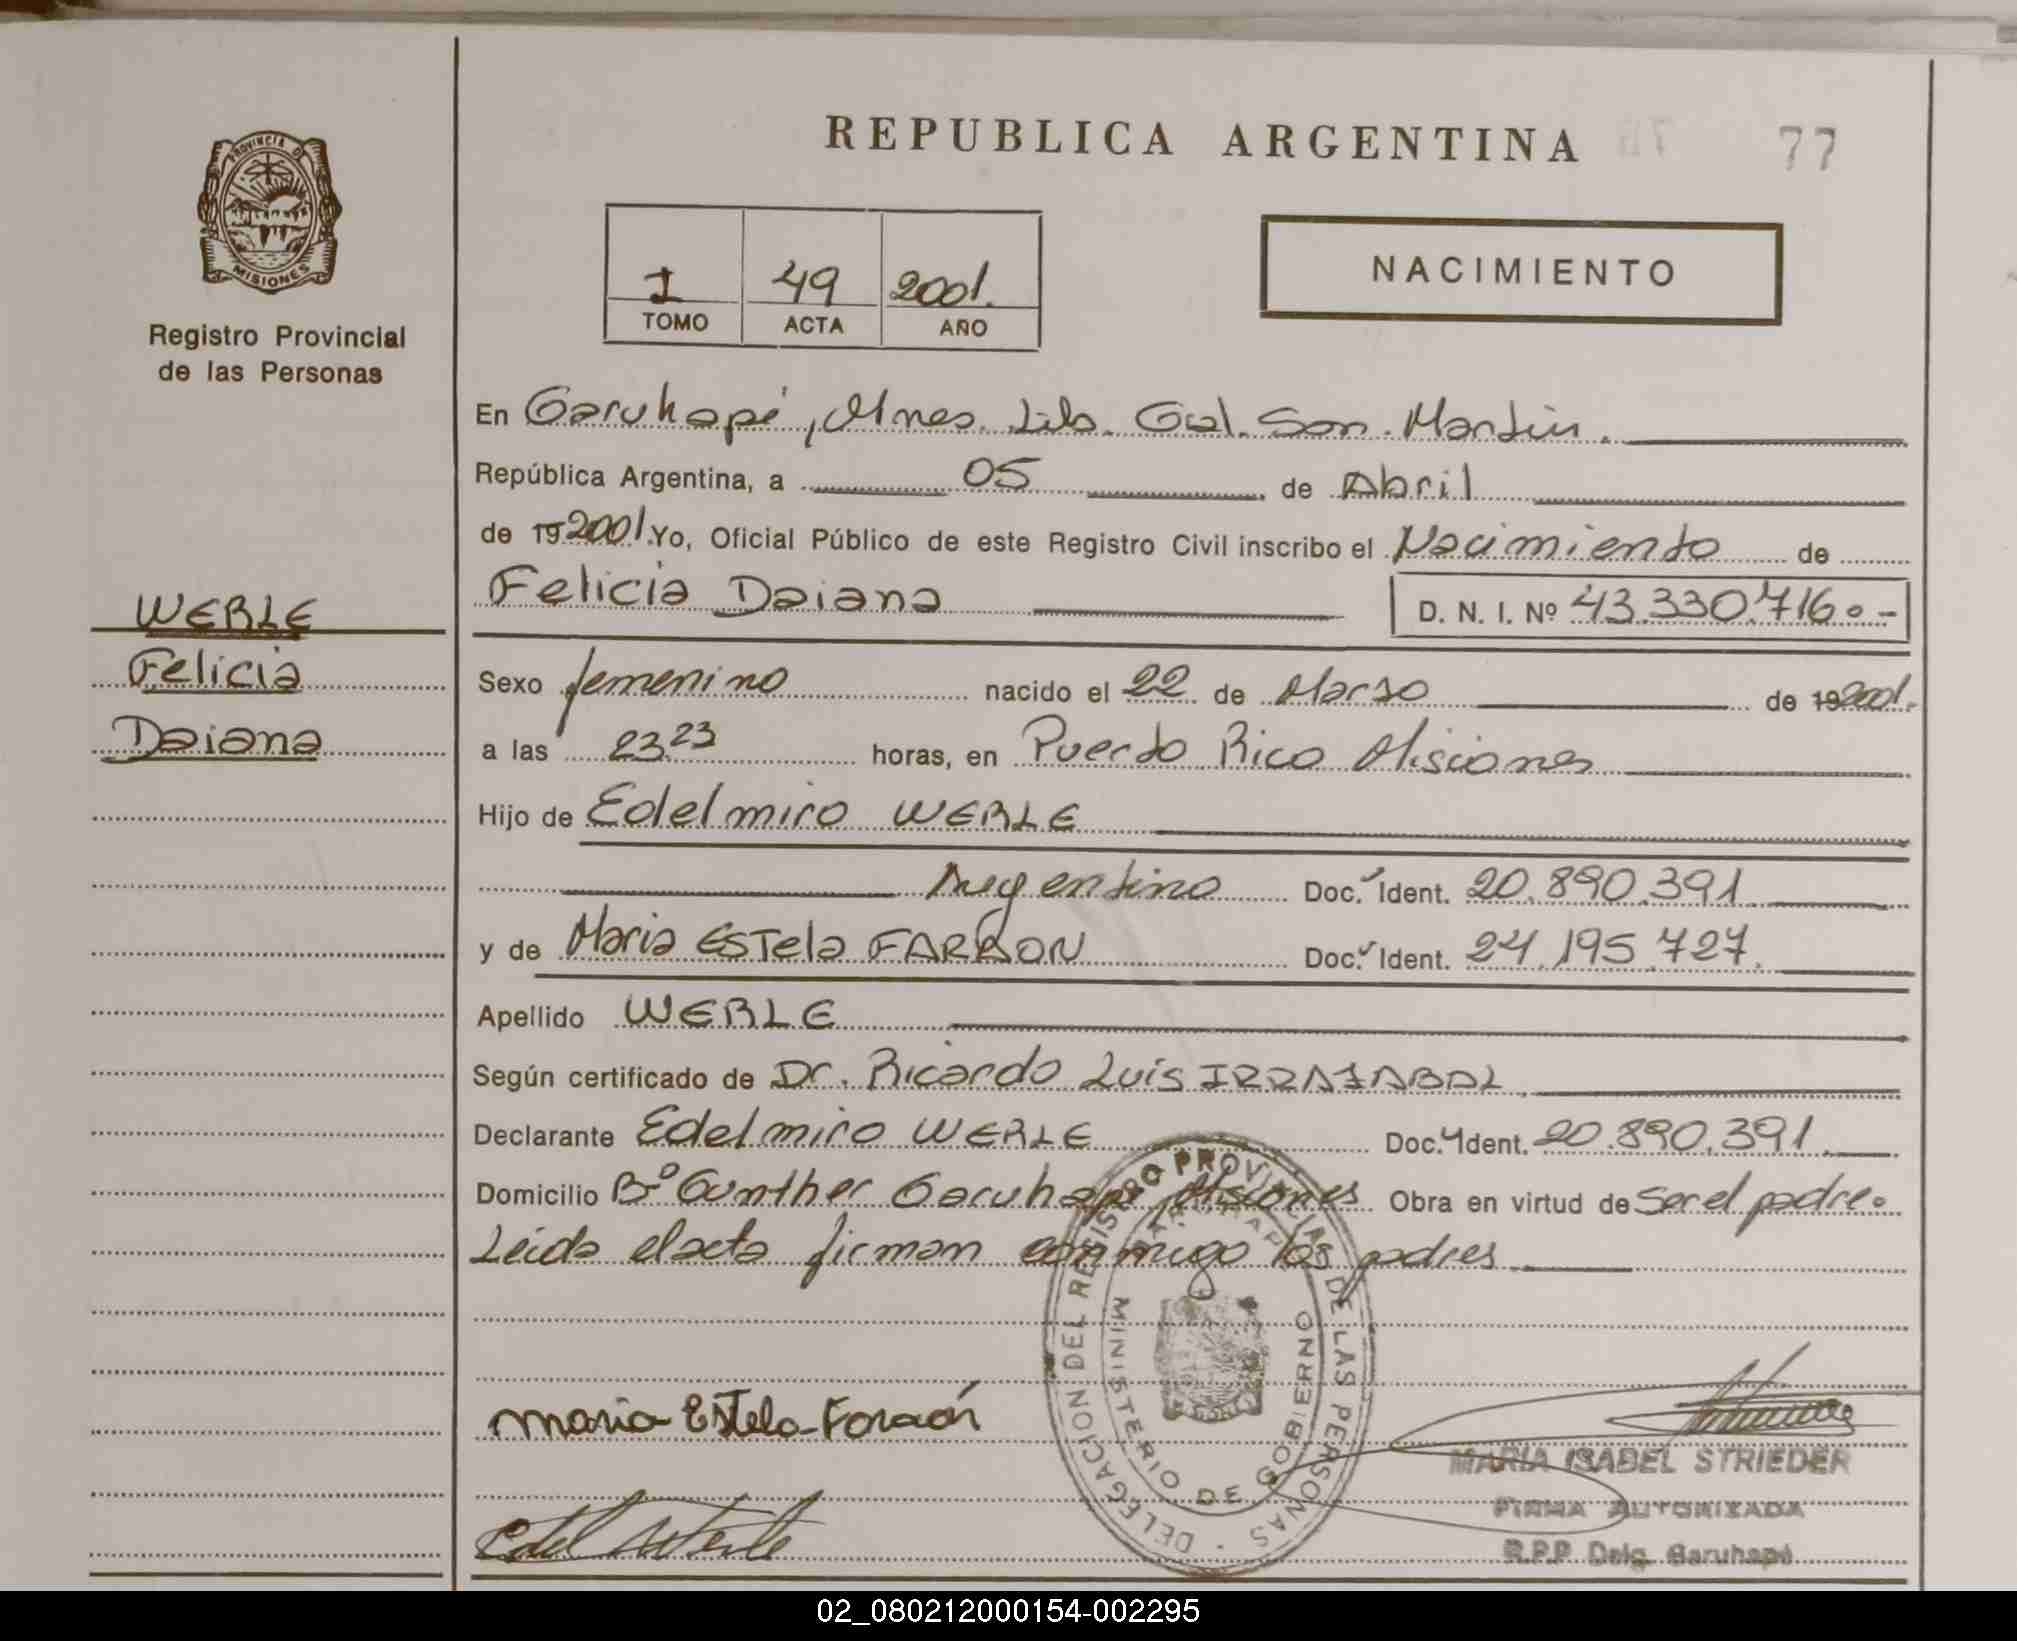 REPUBLICA ARGENTINA
77
PROVINCIA DE
MISIONES
Registro Provincial
de las Personas
I 49 2001.
TOMO ACTA AÑO
NACIMIENTO
En Garuhapé, Mnes. Lib. Gral. San Martín.
República Argentina, a 05 de Abril
de 19 2001. Yo, Oficial Público de este Registro Civil inscribo el Nacimiento de
Felicia Daiana D. N. I. Nº 43.330.716.-
WERLE
Felicia
Daiana
Sexo femenino nacido el 22 de Marzo de 19 2001.
a las 23.23 horas, en Puerto Rico Misiones
Hijo de Edelmiro WERLE
Argentino Doc. Ident. 20.890.391
y de Maria Estela FARAON Doc. Ident. 24.195.727.
Apellido WERLE
Según certificado de Dr. Ricardo Luis
Declarante Edelmiro WERLE Doc. Ident. 20.890.391.
Domicilio Bº Gunther Garuhapé, Misiones Obra en virtud de Ser el padre.
Leida el acta firman conmigo los padres
DELEGACION DEL REGISTRO PROVINCIAL DE LAS PERSONAS
MINISTERIO DE GOBIERNO
Maria Estela Faraón
MARIA ISABEL STRIEDER
FIRMA AUTORIZADA
R.P.P. Delg. Garuhapé
02_080212000154-002295